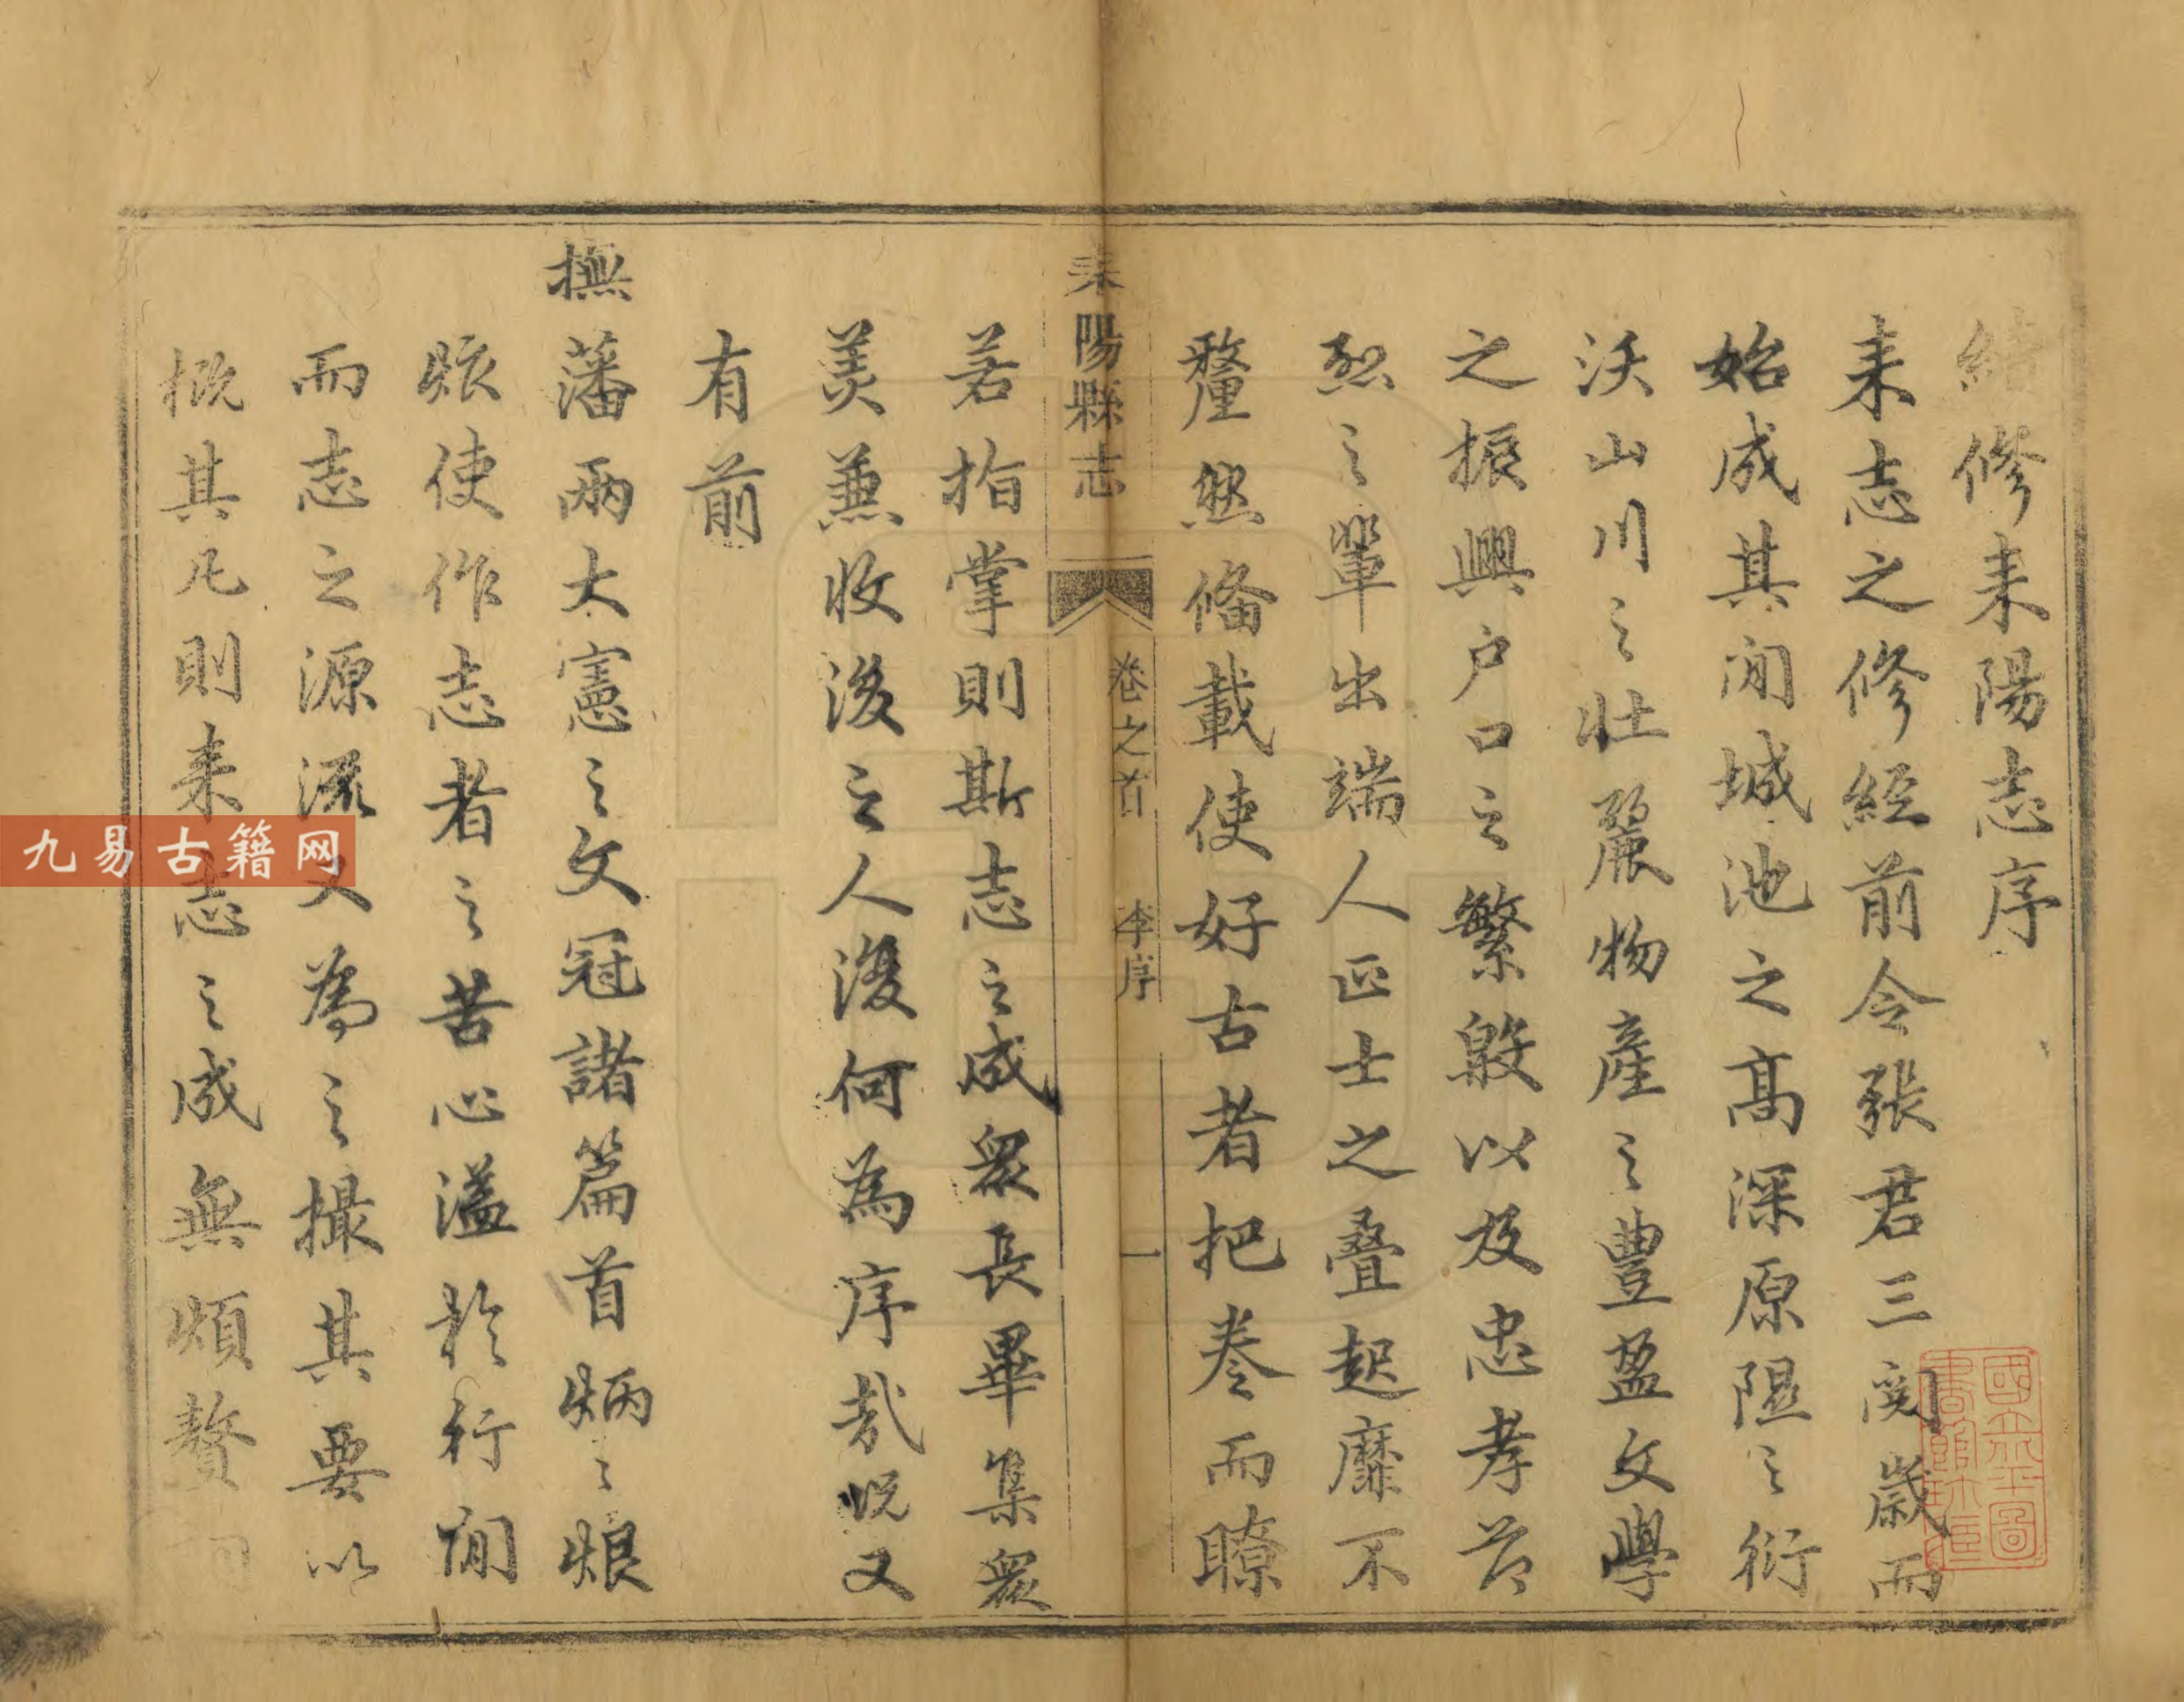 續修耒陽志序
耒志之修經前令張君三閱歲而
始成其間城池之高深原隰之衍
沃山川之壯麗物產之豐盈文學
之振興户口之繁殷以及忠孝節
烈之輩出端人正士之叠起靡不
釐然俻載使好古者把卷而瞭
耒陽縣志
卷之首 李序 一
若指掌則斯志之成衆長畢集衆
美兼收後之人復何為序哉況又
有前
撫藩兩大憲之文冠諸篇首炳ミ烺
烺使作志者之苦心溢於行間
而志之源流又為之撮其要以
概其凡則耒志之成無煩贅
九易古籍网
國立北平圖
書館珍藏